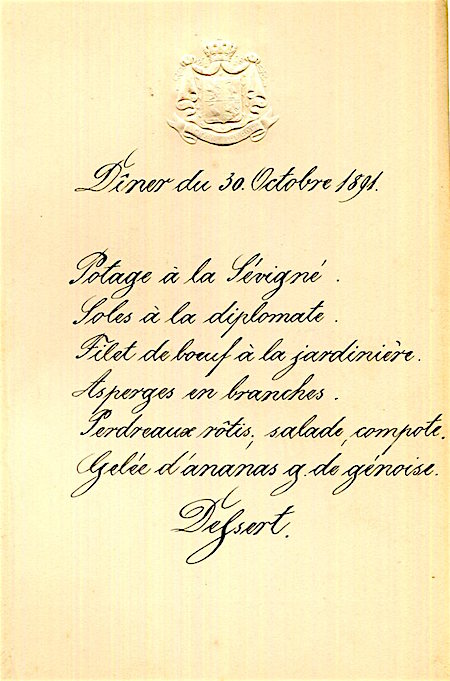 Dîner du 30. Octobre 1891.
Potage à la Sévigné.
Soles à la diplomate.
Filet de boeuf à la jardinière.
Asperges en branches.
Perdreaux rôtis, salade, compote.
Gelée d'ananas g. de génoise.
Dessert.